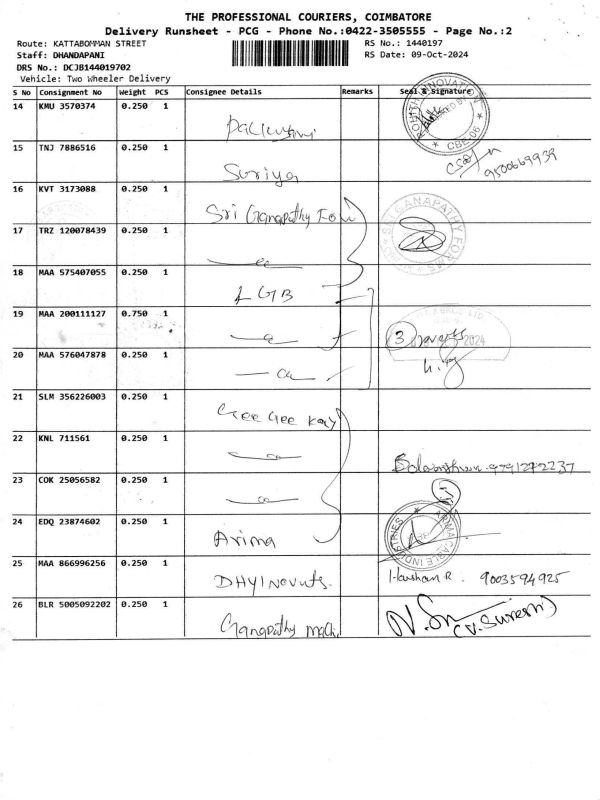 THE PROFESSIONAL COURIERS, COIMBATORE
Delivery Runsheet - PCG - Phone No.:0422-3505555 - Page No.:2
Route: KATTABOMMAN STREET RS No.: 1440197
Staff: DHANDAPANI RS Date: 09-Oct-2024
DRS No.: DCJB144019702
Vehicle: Two Wheeler Delivery
S No Consignment No Weight PCS Consignee Details Remarks Seal & Signature
14 KMU 3570374 0.250 1
CBE-06
15 TNJ 7886516 0.250 1 Suriya
9500669939
16 KVT 3173088 0.250 1 Sri Ganapathy
SRI GANAPATHY FORMS
17 TRZ 120078439 0.250 1
18 MAA 575407055 0.250 1 LGB
19 MAA 200111127 0.750 1
3 2024
20 MAA 576047878 0.250 1
21 SLM 356226003 0.250 1 Gee Gee Kay
22 KNL 711561 0.250 1
9791272237
23 COK 25056582 0.250 1
24 EDQ 23874602 0.250 1 Arima
ARIMA CABLE INDUSTRIES
25 MAA 866996256 0.250 1 Harshan R. 9003594925
26 BLR 5005092202 0.250 1 Ganapathy
(V. Suresh)